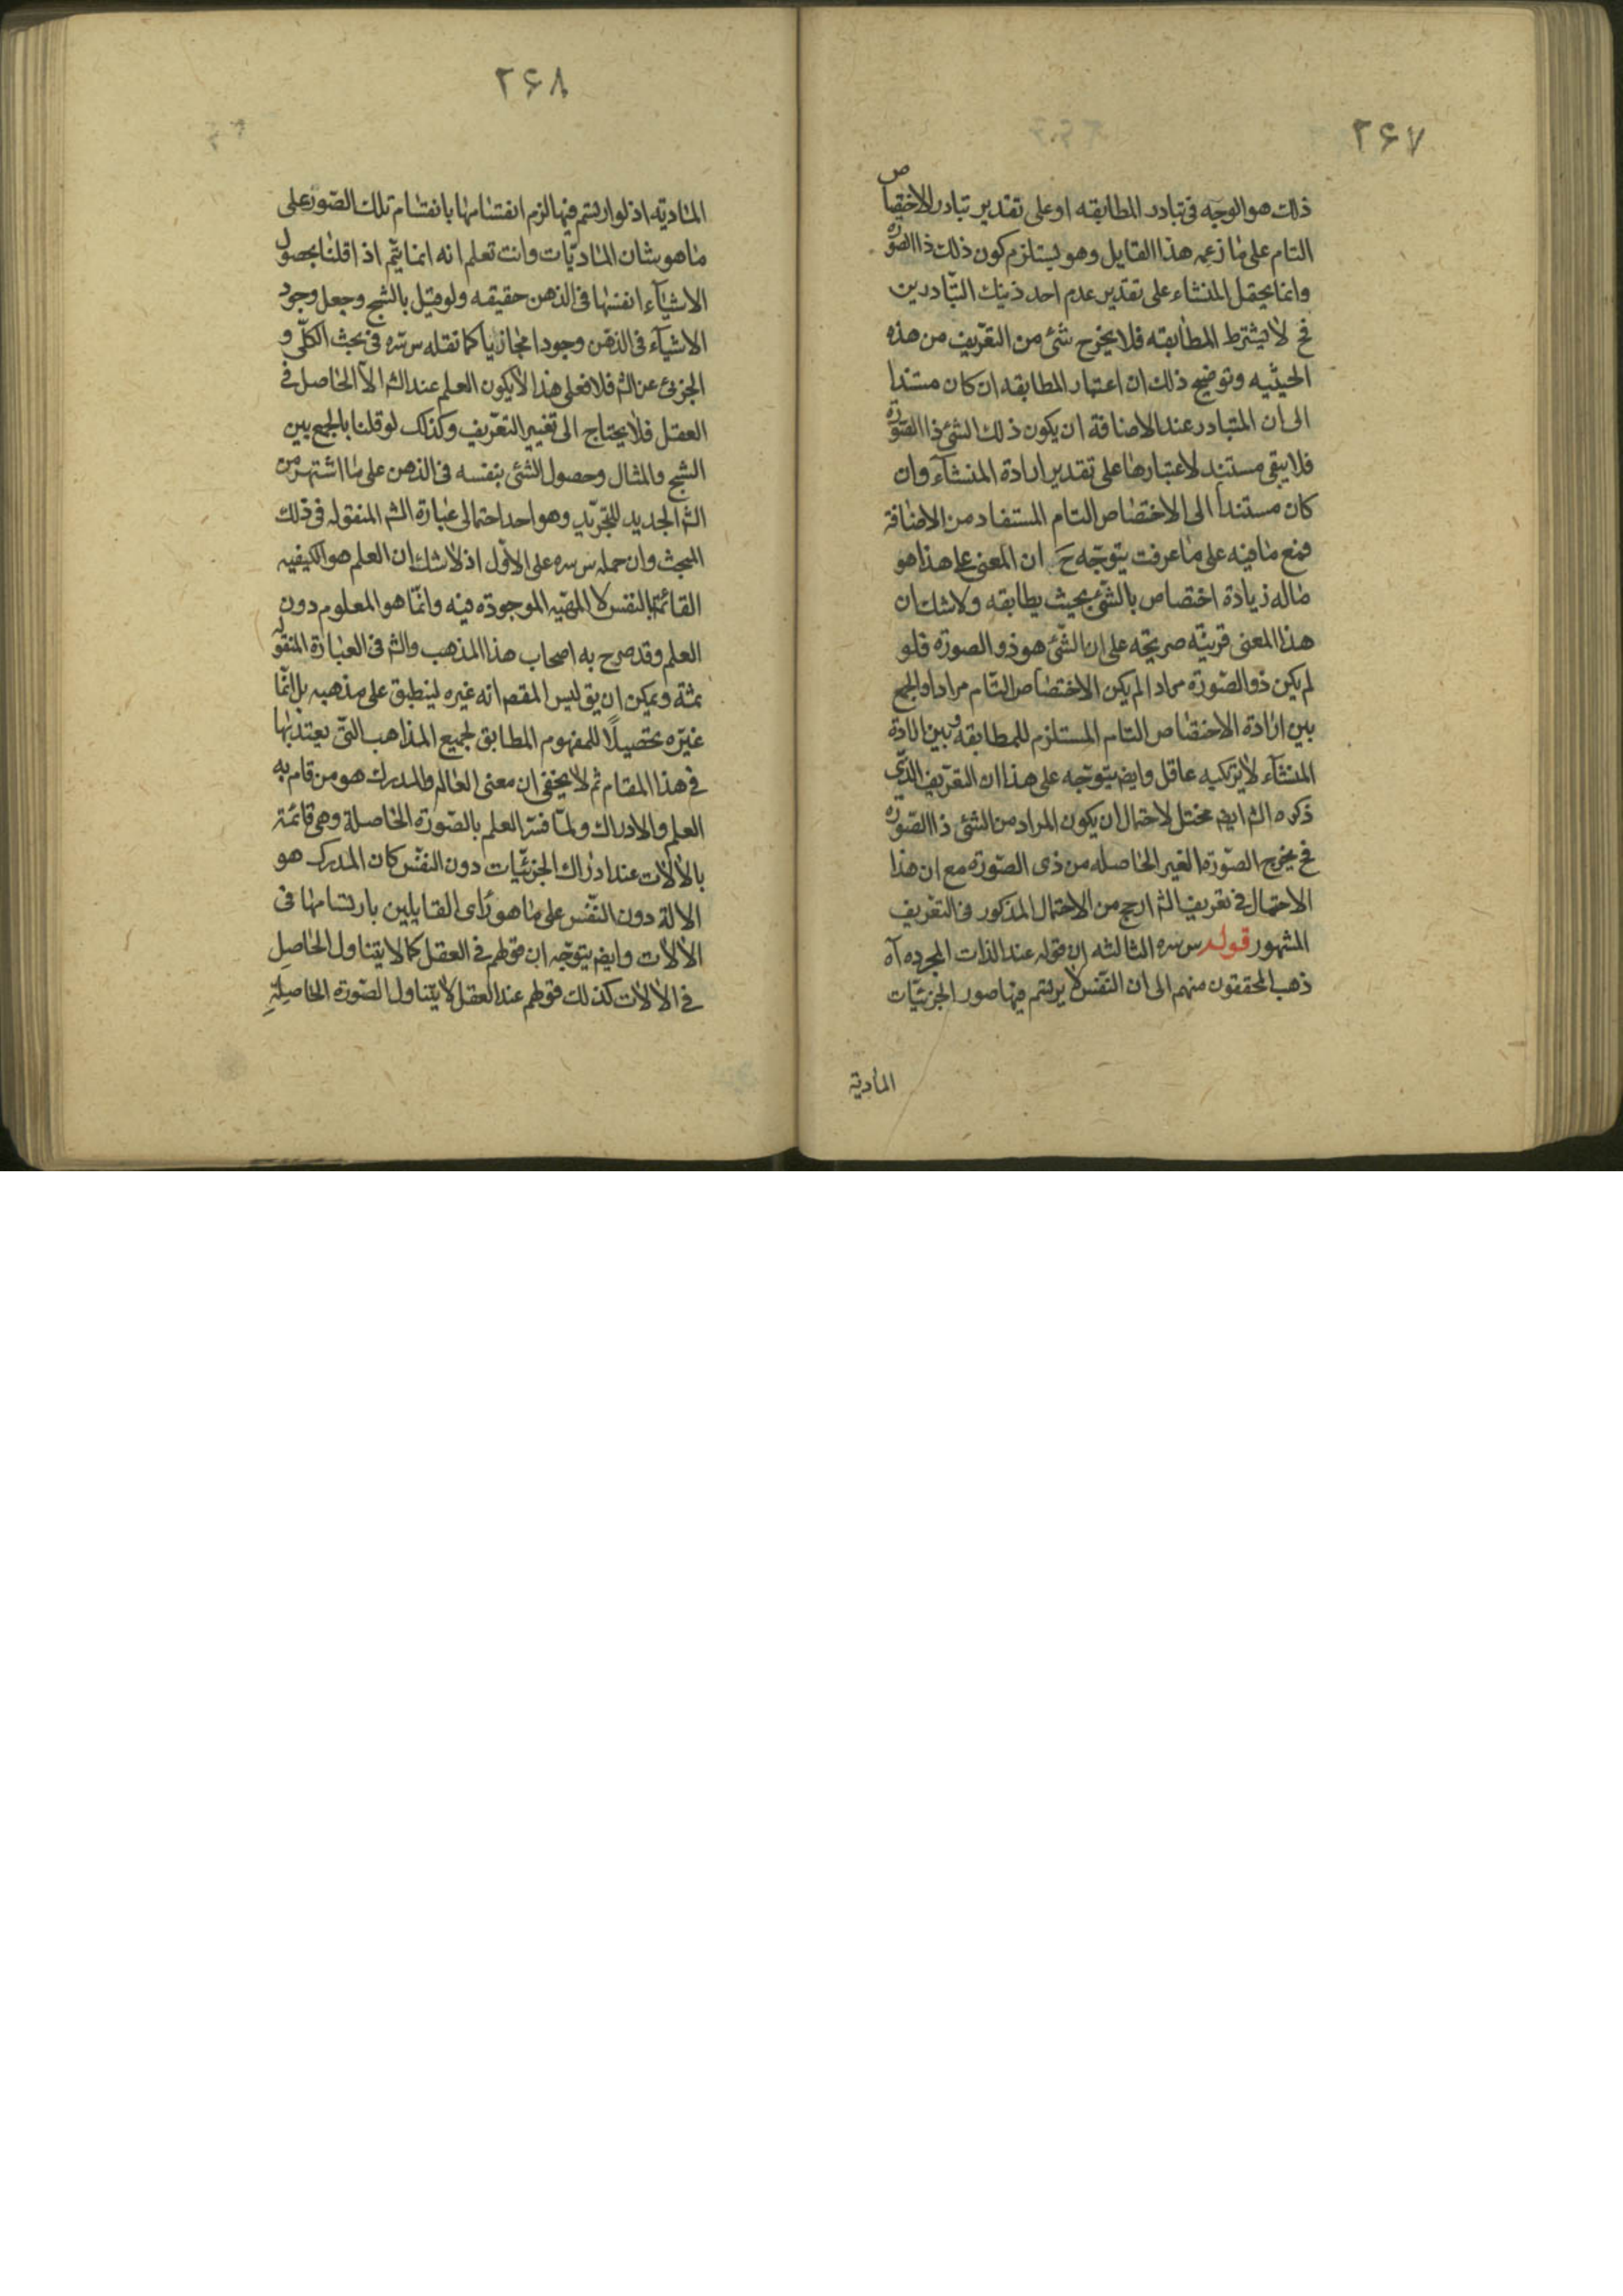 ۲۶۷
ذلك هو الوجه فى تبادر المطابقه او على تقدير تبادر الاختصاص
التام على ما زعمه هذا القايل وهو يستلزم كون ذلك ذا الصورة
وانما يحتمل المنشاء على تقدير عدم احد ذينك التبادرين
فح لا يشترط المطابقه فلا يخرج شئ من التعريف من هذه
الحيثيه وتوضيح ذلك ان اعتبار المطابقه ان كان مستندا
الى ان المتبادر عند الاضافة ان يكون ذلك الشئ ذا الصورة
فلا يبقى مستند لاعتبارها على تقدير ارادة المنشاء وان
كان مستندا الى الاختصاص التام المستفاد من الاضافة
فمنع ما فيه على ما عرفت يتوجه ح ان المعنى على هذا هو
ماله زيادة اختصاص بالشئ بحيث يطابقه ولا شك ان
هذا المعنى قرينة صريحة على ان الشئ هو ذو الصورة فلو
لم يكن ذو الصورة مرادا لم يكن الاختصاص التام مرادا والجمع
بين ارادة الاختصاص التام المستلزم للمطابقه وبين ارادة
المنشاء لا يرتكبه عاقل وايضا يتوجه على هذا ان التعريف الذى
ذكره الش ايضا مختل لاحتمال ان يكون المراد من الشئ ذا الصورة
فح يخرج الصورة الغير الحاصله من ذى الصورة مع ان هذا
الاحتمال فى تعريف الش ارجح من الاحتمال المذكور فى التعريف
المشهور قوله س سره الثالثه ان قوله عند الذات المجرده آه
ذهب المحققون منهم الى ان النفس لا يرتسم فيها صور الجزئيات
المادية
۲۶۸
المادية اذ لو ارتسم فيها لزم انقسامها بانقسام تلك الصور على
ما هو شان الماديات وانت تعلم انه انما يتم اذا قلنا بحصول
الاشياء انفسها فى الذهن حقيقه ولو قيل بالشبح وجعل وجود
الاشياء فى الذهن وجودا مجازيا كما نقله س سره فى بحث الكلى و
الجزئى عن الش فلا فعلى هذا لا يكون العلم عند الش الا الحاصل فى
العقل فلا يحتاج الى تغيير التعريف وكذلك لو قلنا بالجمع بين
الشبح والمثال وحصول الشئ بنفسه فى الذهن على ما اشتهر من
الش الجديد للتجريد وهو احد احتمالى عبارة الش المنقوله فى ذلك
المبحث وان حمله س سره على الاول اذ لا شك ان العلم هو الكيفيه
القائمة بالنفس لا المهيه الموجودة فيه وانما هو المعلوم دون
العلم وقد صرح به اصحاب هذا المذهب والش فى العبارة المنقوله
ثمة ويمكن ان يق ليس المقصم انه غيره لينطبق على مذهبه بل انما
غيره تحصيلاً للمفهوم المطابق لجميع المذاهب التى يعتد بها
فى هذا المقام ثم لا يخفى ان معنى العالم والمدرك هو من قام به
العلم والادراك ولما فسر العلم بالصورة الحاصلة وهى قائمة
بالالات عند ادراك الجزئيات دون النفس كان المدرك هو
الالة دون النفس على ما هو راى القايلين بارتسامها فى
الالات وايضا يتوجه ان قولهم فى العقل كما لا يتناول الحاصل
فى الالات كذلك قولهم عند العقل لا يتناول الصورة الحاصلة